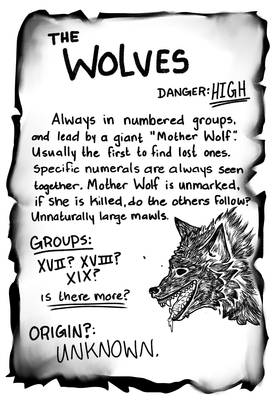 THE
WOLVES
DANGER: HIGH
Always in numbered groups,
and lead by a giant "Mother Wolf".
Usually the first to find lost ones.
Specific numerals are always seen
together. Mother Wolf is unmarked,
if she is killed, do the others follow?
Unnaturally large mawls.
GROUPS:
XVII? XVIII?
XIX?
is there more?
ORIGIN?:
UNKNOWN.